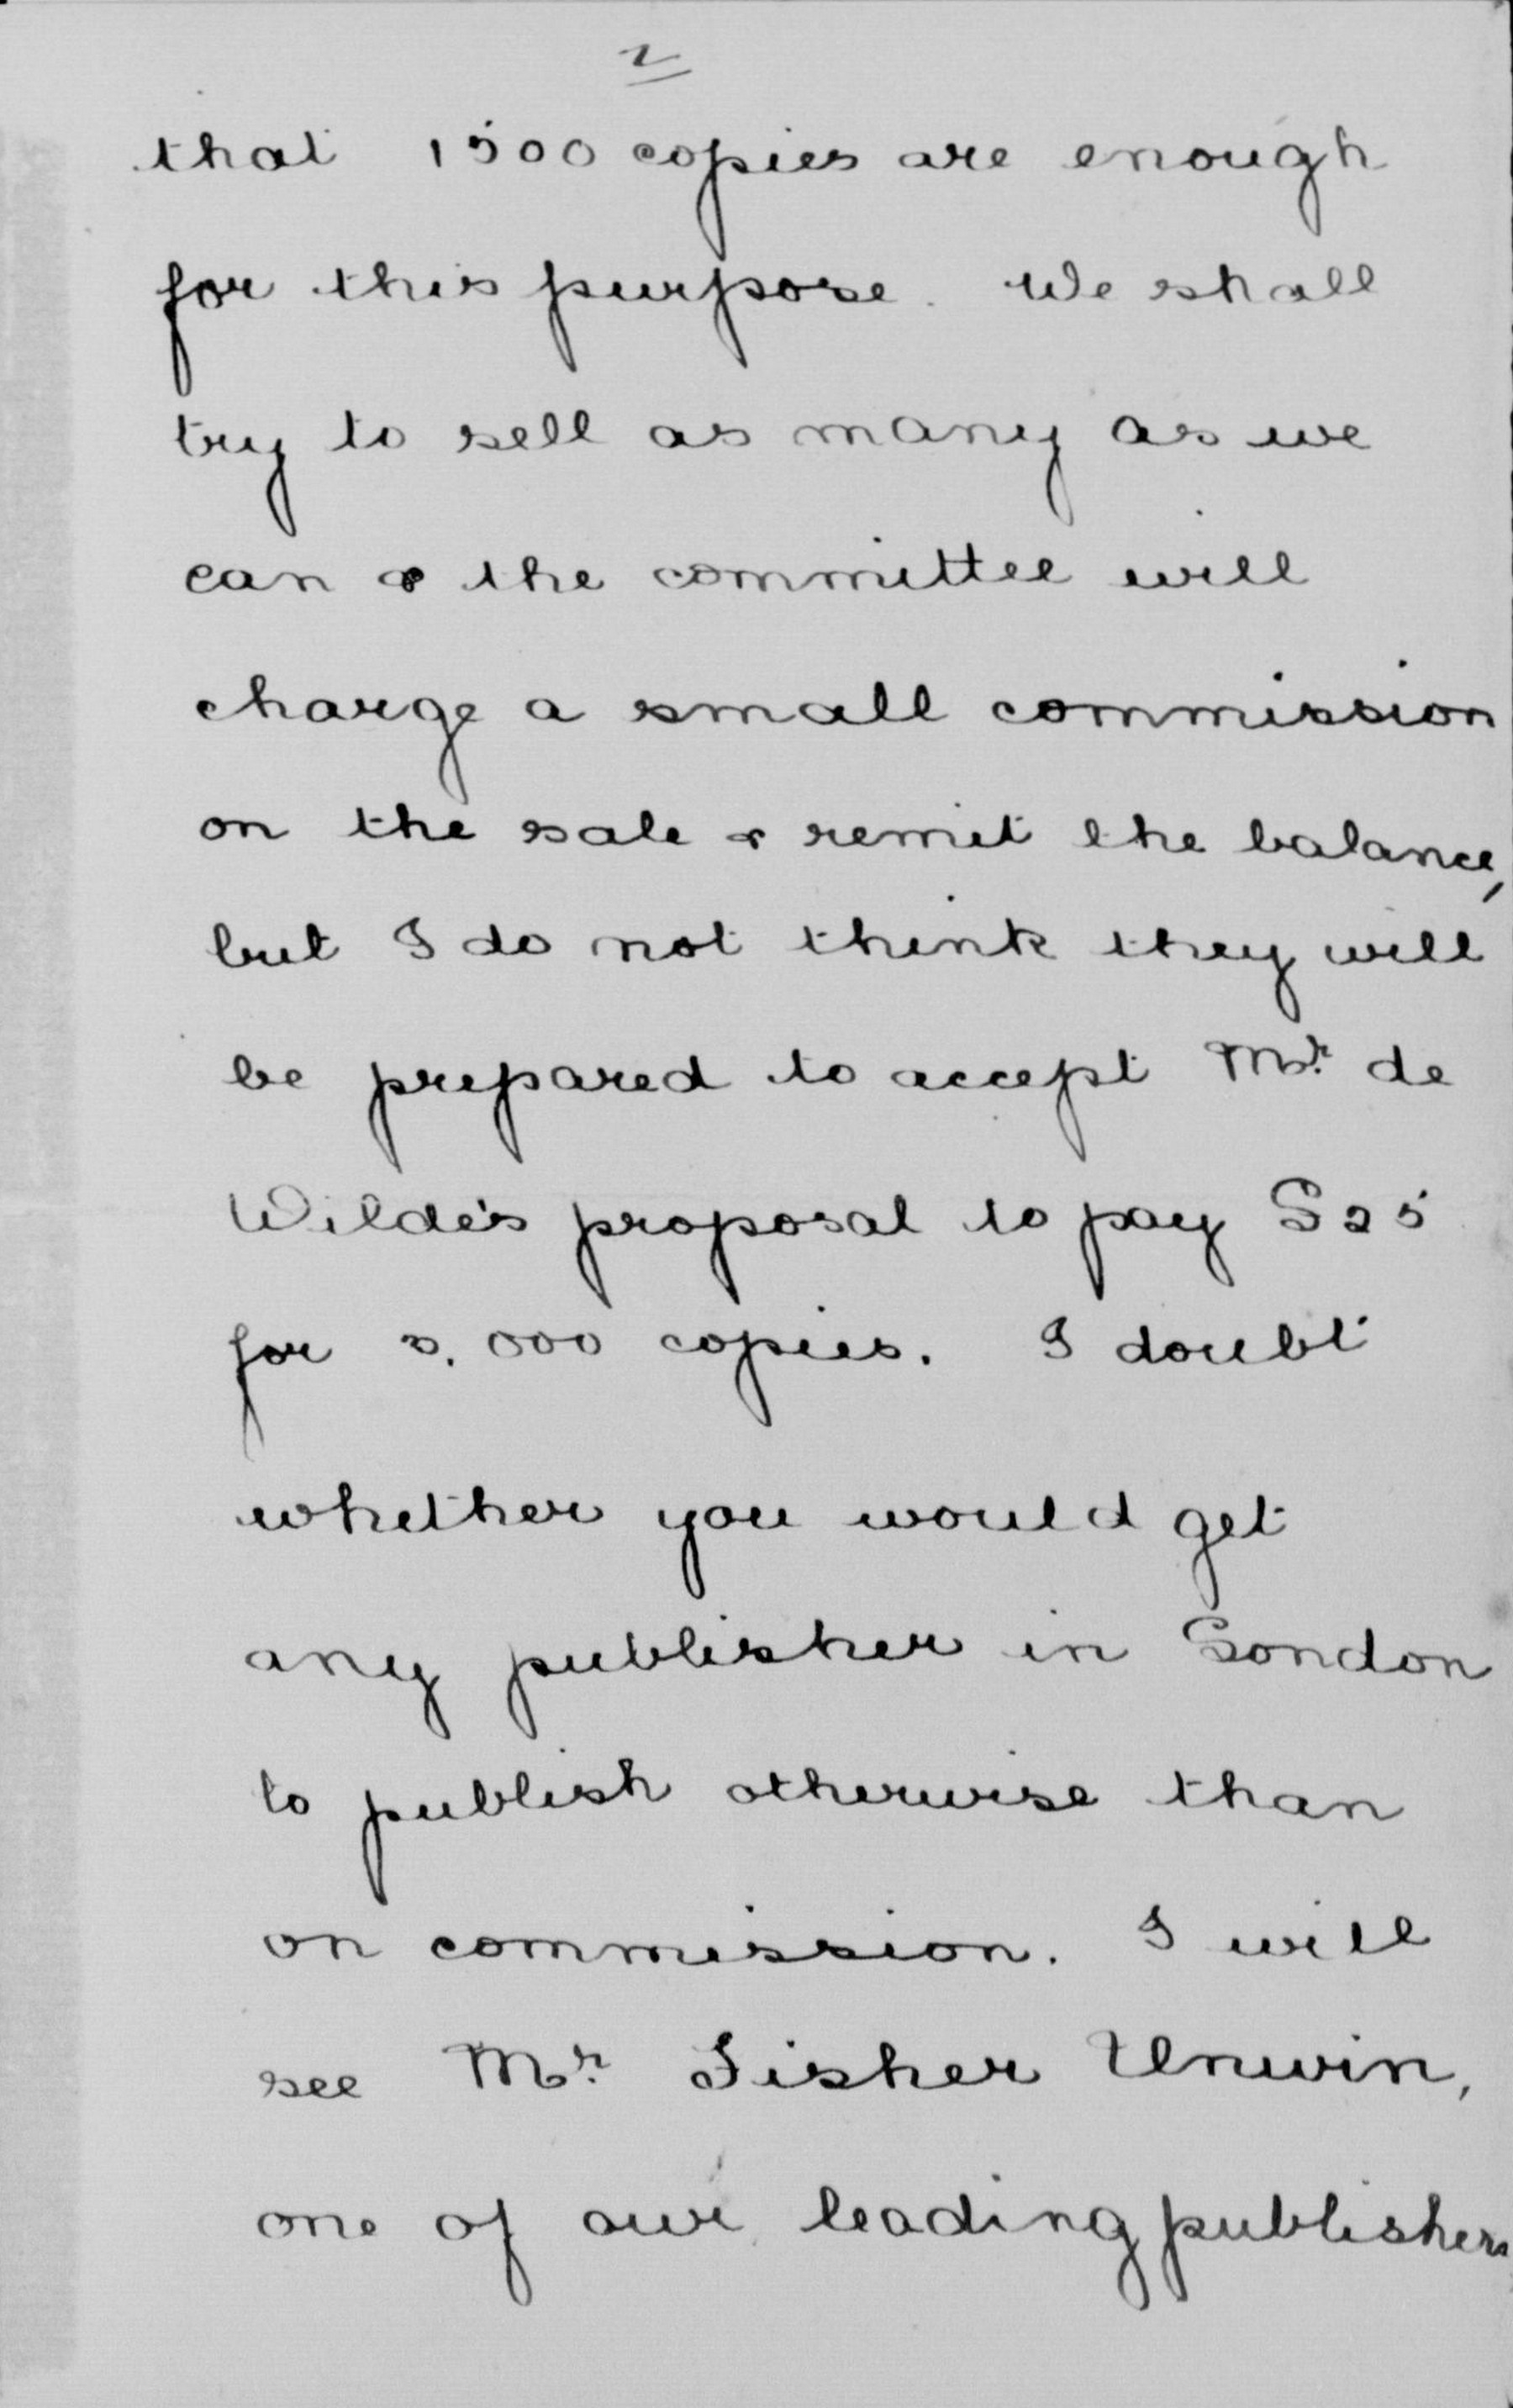 2
that 1500 copies are enough
for this purpose. We shall
try to sell as many as we
can & the committee will
charge a small commission
on the sale & remit the balance,
but I do not think they will
be prepared to accept Mr. de
Wilde's proposal to pay £25
for 3,000 copies. I doubt
whether you would get
any publisher in London
to publish otherwise than
on commission. I will
see Mr. Fisher Unwin,
one of our leading publishers